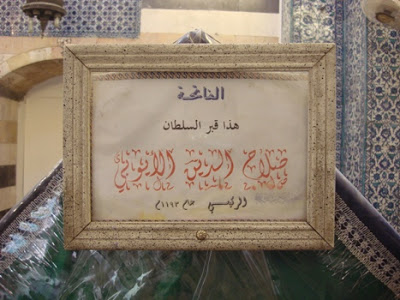 الفاتحة
هذا قبر السلطان
صلاح الدين الأيوبي
عام ١١٩٣م